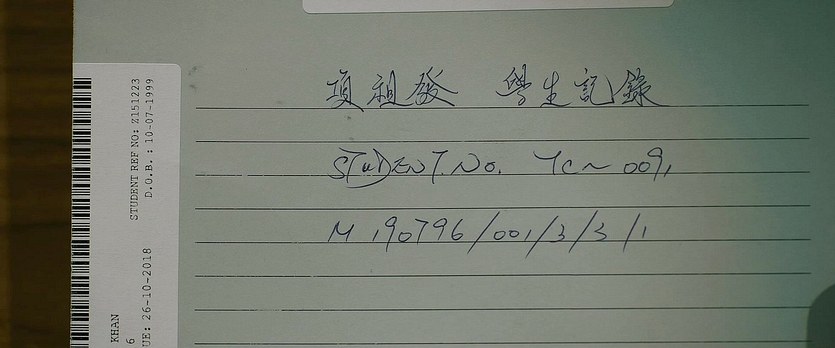 項祖發 學生記錄
STUDENT.No. YC~009,
M 190796/001/3/3/1
STUDENT REF NO: Z151223
D.O.B. : 10-07-1999
KHAN
6
UE: 26-10-2018